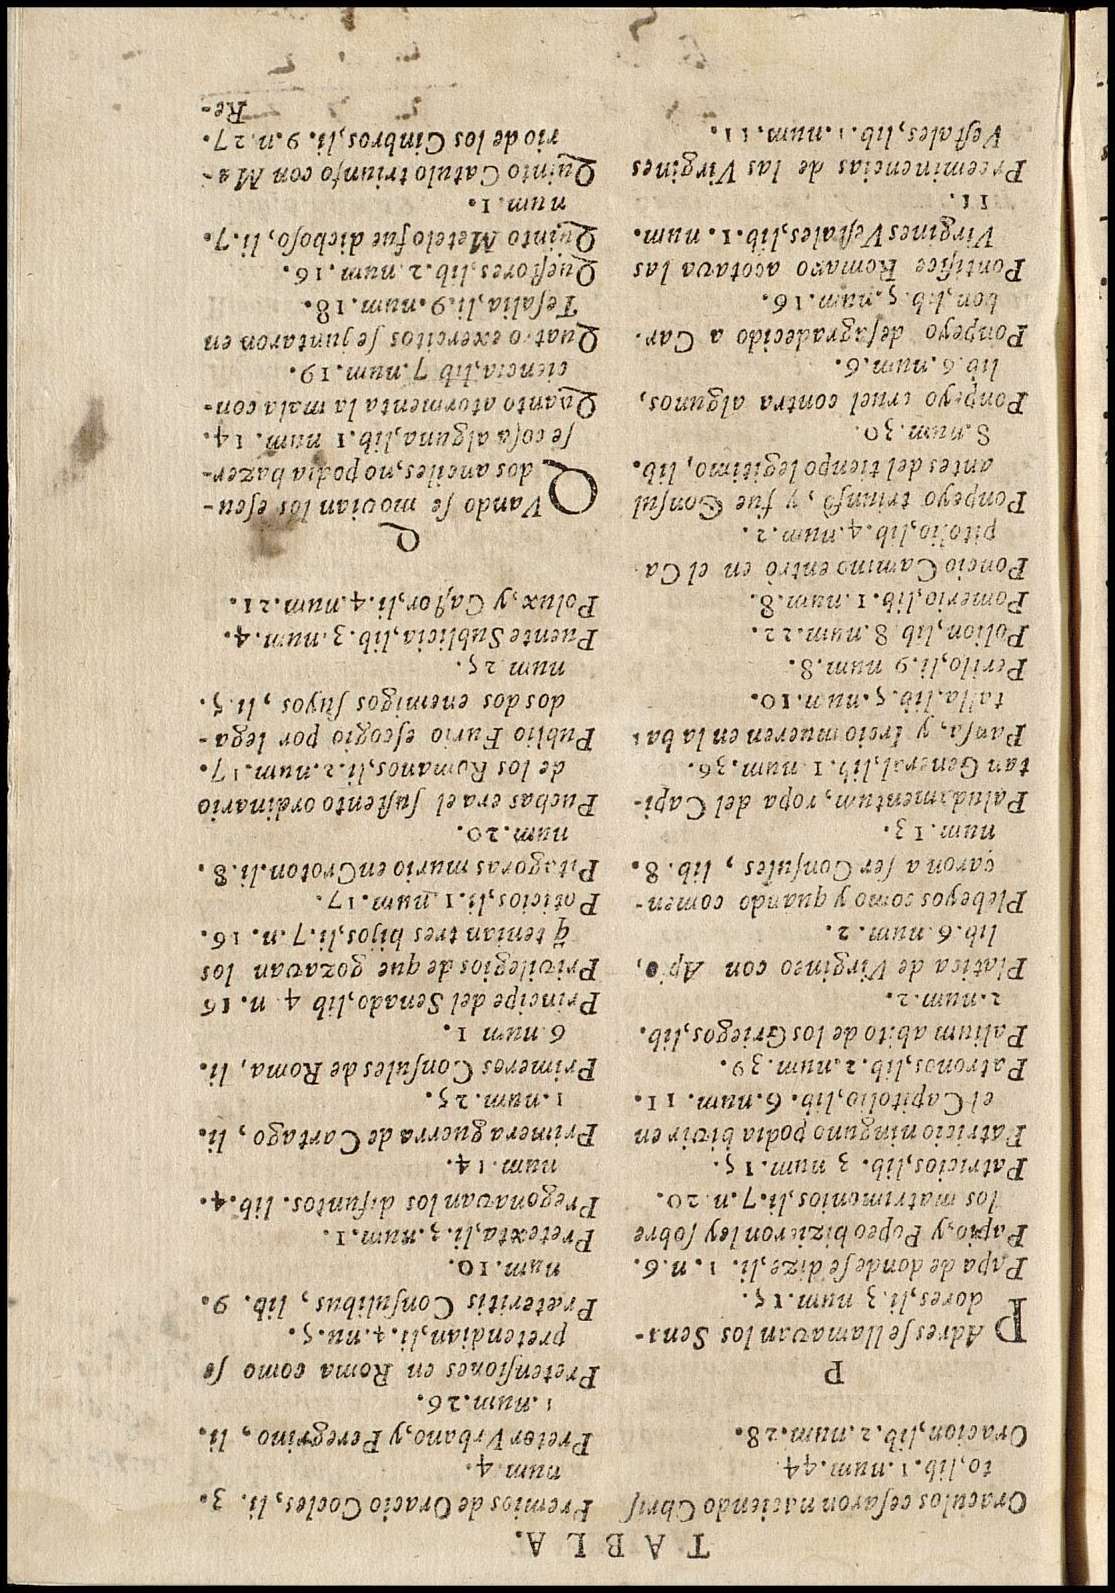 TABLA.
Oraculos cesaron naciendo Chris
to, lib. 1. num. 44.
Oracion, lib. 2. num. 28.
P
PAdres se llamavan los Sena-
dores, li. 3 num. 15.
Papa de donde se dize, li. 1. n. 6.
Papio, y Popeo hizieron ley sobre
los matrimonios, li. 7. n. 20.
Patricios, lib. 3 num. 15.
Patricio ninguno podia bivir en
el Capitolio, lib. 6. num. 11.
Patronos, lib. 2. num. 39.
Palium abito de los Griegos, lib.
2. num. 2.
Platica de Virgineo con Apio,
lib. 6. num. 2.
Plebeyos como y quando comen-
çaron a ser Consules, lib. 8.
num. 13.
Paludamentum, ropa del Capi-
tan General, lib. 1 num. 36.
Pansa, y Ircio mueren en la ba
talla. lib. 5. num. 10.
Perilo, li. 9 num. 8.
Polion, lib. 8. num. 22.
Pomerio, lib. 1. num. 8.
Poncio Camino entrò en el Ca
pitolio, lib. 4. num. 2.
Ponpeyo triunfò, y fue Consul
antes del tienpo legitimo, lib.
8. num. 30.
Ponpeyo cruel contra algunos,
lib. 6. num. 6.
Ponpeyo desagradecido a Car.
bon, lib. 5. num. 16.
Pontifice Romano açotava las
Virgines Vestales, lib. 1. num.
11.
Preeminencias de las Virgines
Vestales, lib. 1. num. 11.
Premios de Oracio Cocles, li. 3.
num. 4.
Pretor Vrbano, y Peregrino, li.
1. num. 26.
Pretensiones en Roma como se
pretendian, li. 4. nu. 5.
Præteritis Consulibus, lib. 9.
num. 10.
Pretexta, li. 3. num. 1.
Pregonavan los difuntos. lib. 4.
num. 14.
Primera guerra de Cartago, li.
1. num. 25.
Primeros Consules de Roma, li.
6 num 1.
Principe del Senado, lib 4 n. 16
Privilegios de que gozavan los
q̃ tenian tres hijos, li. 7. n. 16.
Poticios, li. 1 num. 17.
Pitagoras murio en Croton. li. 8.
num. 20.
Puchas era el sustento ordinario
de los Romanos, li. 2. num. 17.
Publio Furio escogio por lega-
dos dos enemigos suyos, li. 5.
num 25.
Puente Sublicia, lib. 3. num. 4.
Polux y, Castor, li. 4. num. 21.
Q
QVando se movian los escu-
dos anciles, no podia hazer-
se cosa alguna, lib. 1 num. 14.
Quanto atormenta la mala con-
ciencia, lib 7. num. 19.
Quatro exercitos se juntaron en
Tesalia, li. 9. num. 18.
Questores, lib. 2. num. 16.
Quinto Metelo fue dichoso, li. 7.
num. 1.
Quinto Catulo triunfo con Ma-
rio de los Cinbros, li. 9. n. 27.
Re-